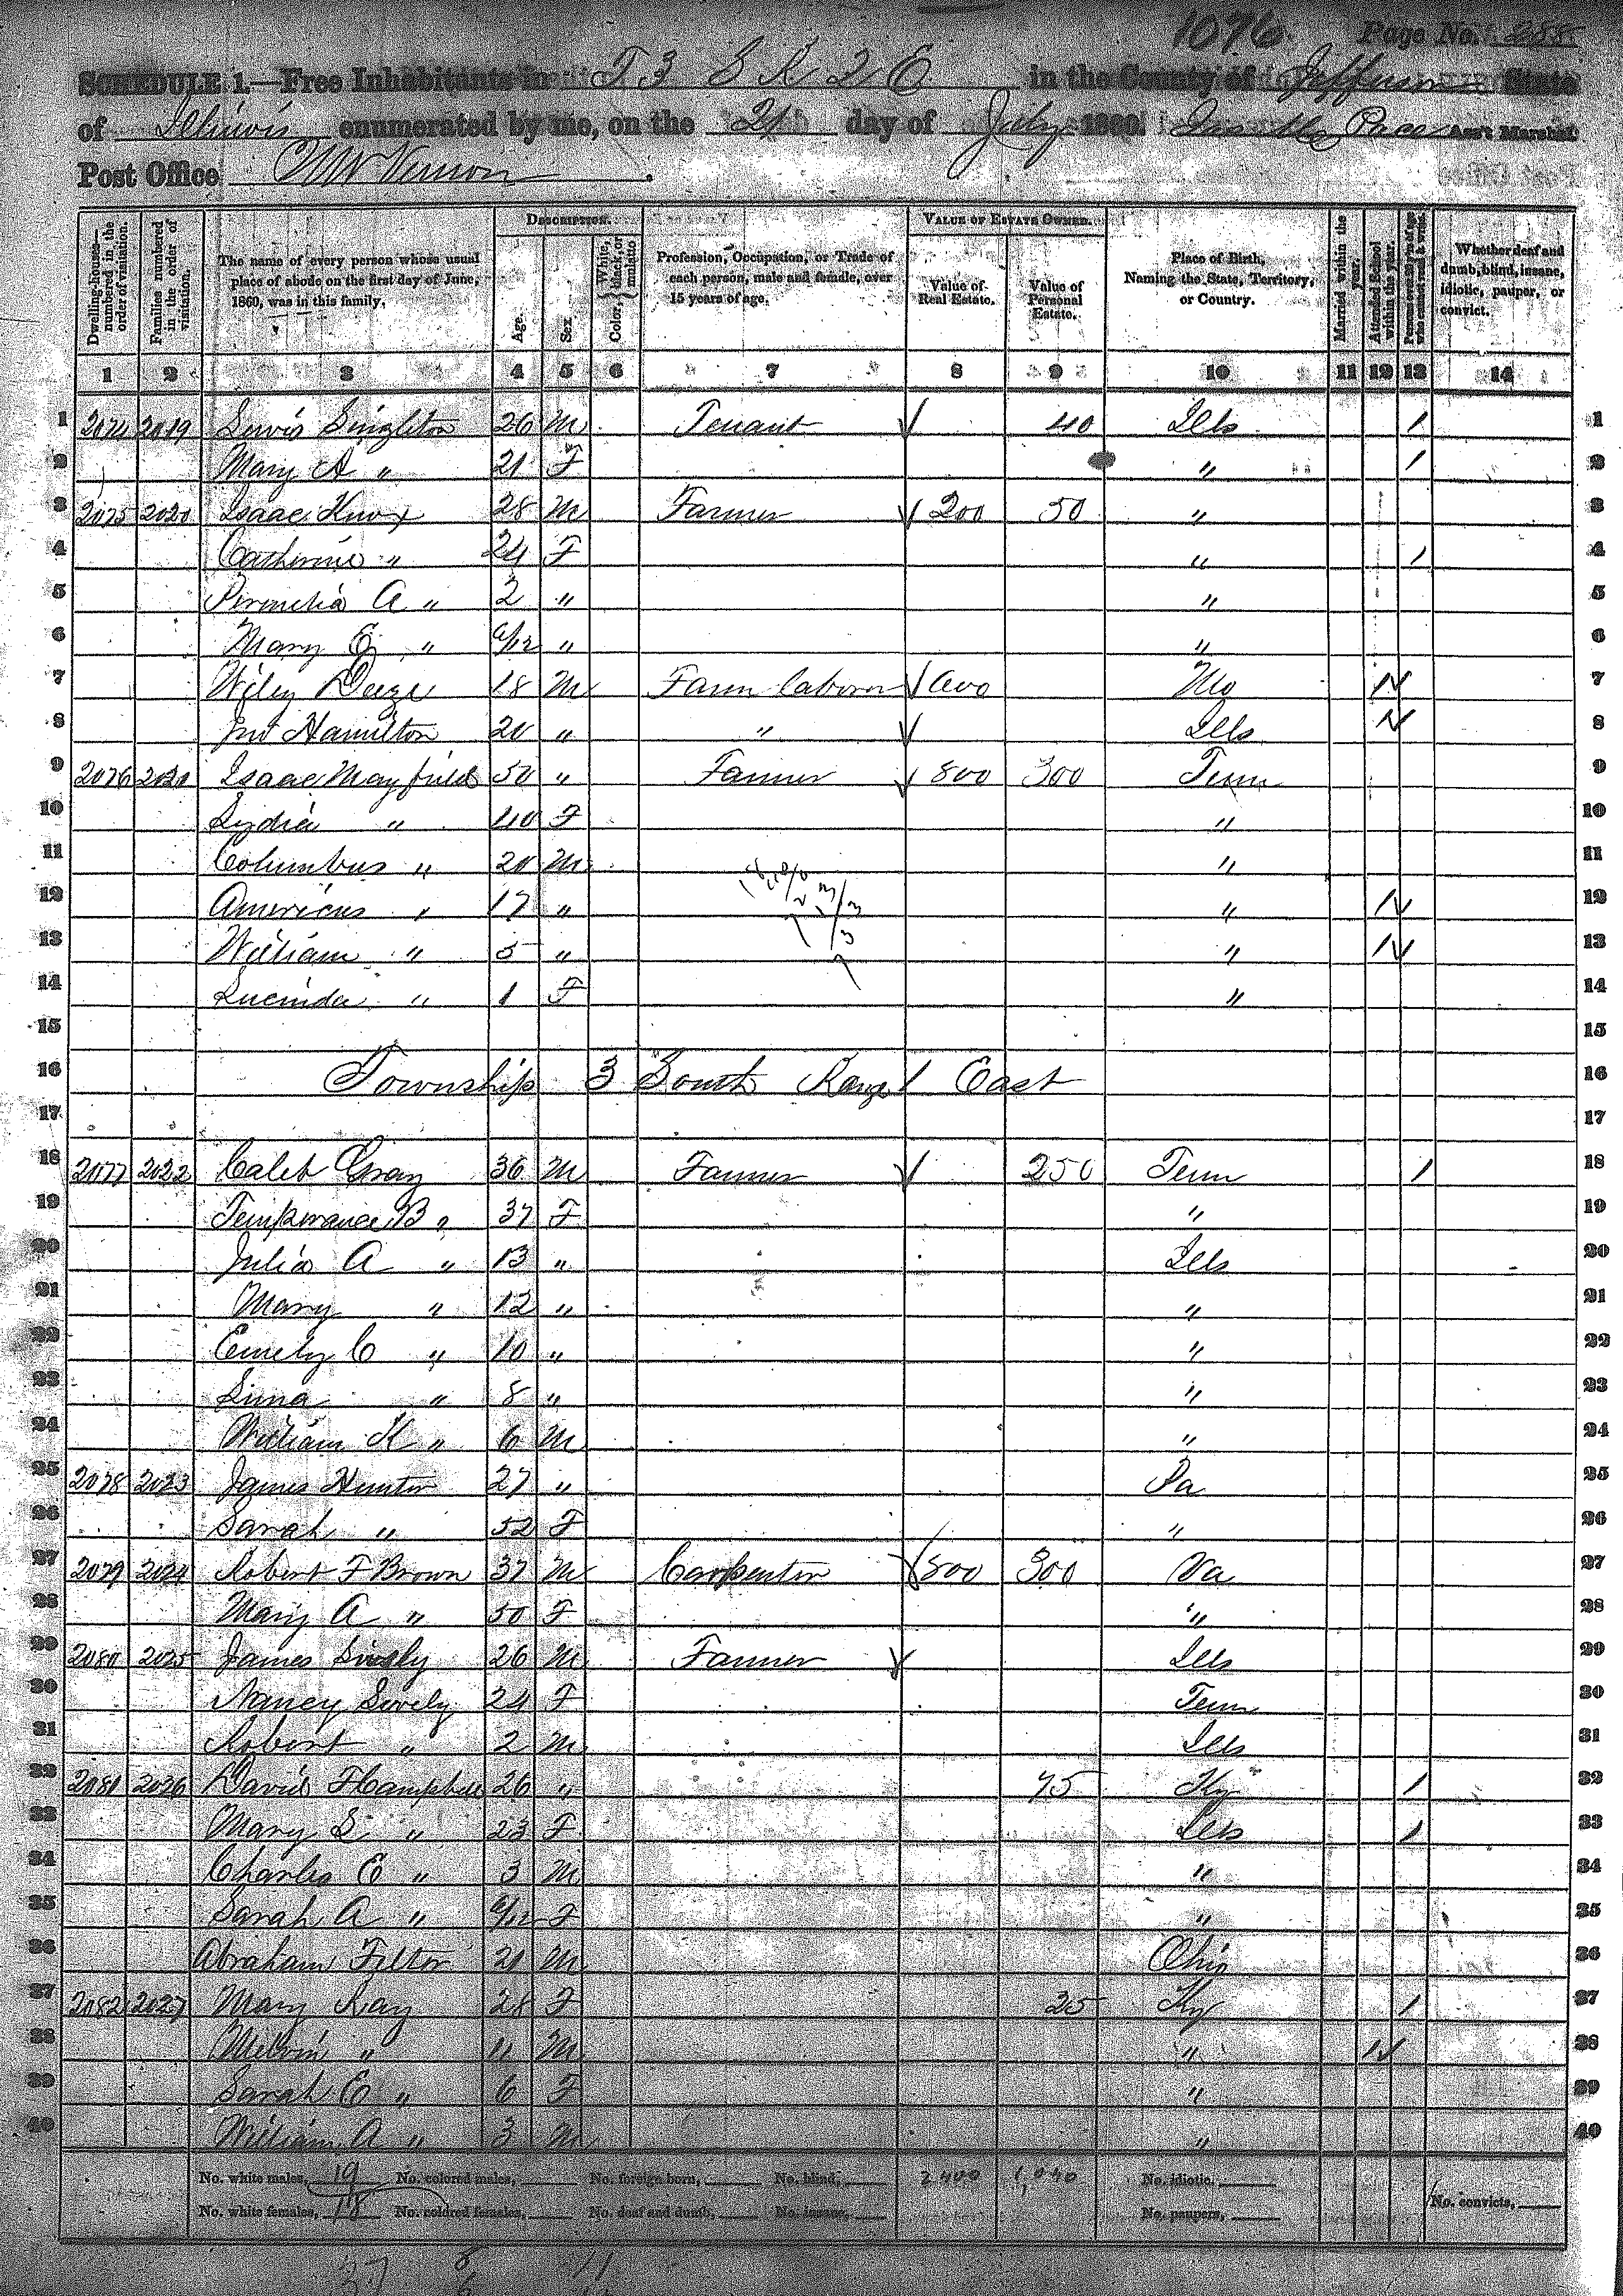 1076 Page No. 288
SCHEDULE 1.—Free Inhabitants in T 3 S R 2 E in the County of Jefferson State
of Illinois enumerated by me, on the 21 day of July 1860. Pace Ass't Marshal
Post Office Mt Vernon
Dwelling-houses—numbered in the order of visitation.
Families numbered in the order of visitation.
The name of every person whose usual place of abode on the first day of June, 1860, was in this family.
DESCRIPTION.
Age.
Sex.
Color, White, black, or mulatto
Profession, Occupation, or Trade of each person, male and female, over 15 years of age.
VALUE OF ESTATE OWNED.
Value of Real Estate.
Value of Personal Estate.
Place of Birth, Naming the State, Territory, or Country.
Married within the year.
Attended School within the year.
Persons over 20 y'rs of age who cannot read & write.
Whether deaf and dumb, blind, insane, idiotic, pauper, or convict.
1 2 3 4 5 6 7 8 9 10 11 12 13 14
1 2074 2019 Lewis Singleton 26 M Tenant 40 Ills / 1
2 Mary A " 21 F " / 2
3 2075 2020 Isaac Knox 28 M Farmer 200 50 " 3
4 Catherine " 24 F " / 4
5 Permelia A " 2 " " 5
6 Mary E " /12 " " 6
7 Wiley 18 M Farm labourer Mo 7
8 Jno Hamilton 20 " " Ills 8
9 2076 2021 Isaac Mayfield 50 " Farmer 800 300 Tenn 9
10 Lydia " 40 F " 10
11 Columbus " 20 M " 11
12 Americus " 17 " " 12
13 William " 5 " " 13
14 Lucinda " 1 F " 14
15 15
16 Township 3 South Range 1 East 16
17 17
18 2077 2022 Caleb Gray 36 M Farmer 250 Tenn / 18
19 Temperance B " 37 F " 19
20 Julia A " 13 " Ills 20
21 Mary " 12 " " 21
22 Emily C " 10 " " 22
23 " 8 " " 23
24 William K " 6 M " 24
25 2078 2023 James Hunter 27 " Pa 25
26 Sarah " 52 F " 26
27 2079 2024 Robert F Brown 37 M Carpenter 800 300 Va 27
28 Mary A " 50 F " 28
29 2080 2025 James 26 M Farmer Ills 29
30 Nancy 24 F Tenn 30
31 Robert " 2 M Ills 31
32 2081 2026 David H Campbell 26 " 75 Ky / 32
33 Mary S " 23 F Ills / 33
34 Charles E " 3 M " 34
35 Sarah A " /12 F " 35
36 Abraham 21 M Ohio 36
37 2082 2027 Mary Ray 28 F 25 Ky / 37
38 Melvin " 11 M " 38
39 Sarah E " 6 F " 39
40 William A " 3 M " 40
No. white males, 19 No. colored males, No. foreign born, No. blind, 2400 1,040 No. idiotic,
No. white females, 18 No. colored females, No. deaf and dumb, No. insane, No. paupers, No. convicts,
37 8 11